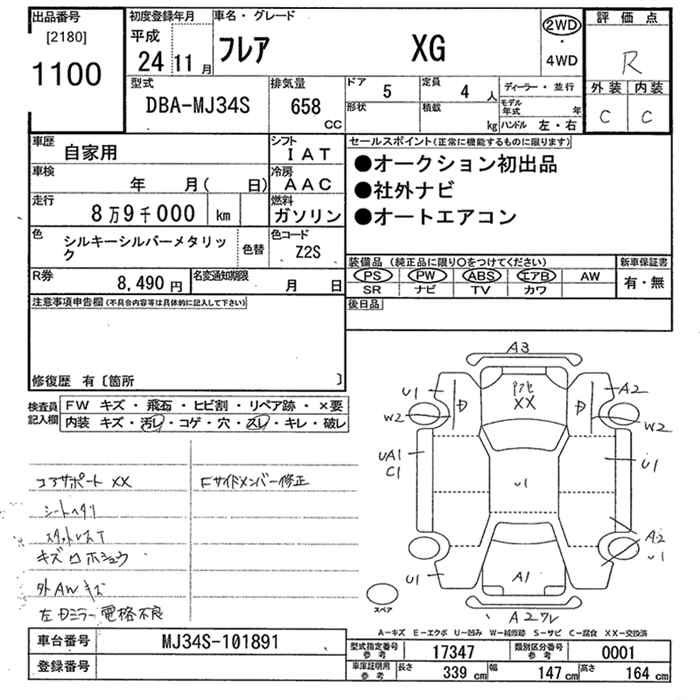 出品番号
[2180]
1100
初度登録年月
平成
24 11月
車名・グレード
フレア XG
2WD
・
4WD
評価点
R
外装 内装
C C
型式
DBA-MJ34S
排気量
658 CC
ドア 5
定員 4 人
形状
積載 kg
ディーラー・並行
モデル年式 年
ハンドル 左・右
車歴
自家用
シフト
IAT
車検
年 月( 日)
冷房
AAC
走行
8万9千000 km
燃料
ガソリン
色
シルキーシルバーメタリック
色替
色コード
Z2S
R券
8,490円
名変通知期限
月 日
セールスポイント(正常に機能するものに限ります)
●オークション初出品
●社外ナビ
●オートエアコン
装備品(純正品に限り〇をつけてください)
新車保証書
PS PW ABS エアB AW
SR ナビ TV カワ
有・無
後日品
注意事項申告欄(不具合内容等は具体的に記入して下さい)
修復歴 有〔箇所 〕
検査員記入欄
FW キズ・飛石・ヒビ割・リペア跡・×要
内装 キズ・汚レ・コゲ・穴・スレ・キレ・破レ
コアサポート XX
Fサイドメンバー修正
シートヘタリ
キズ ロ ホシュウ
外AWキズ
左ドミラー電格不良
A3
U1
A2
W2
XX
W2
UA1
C1
U1
U1
A2
U1
U1
A1
A2ワレ
スペア
A-キズ E-エクボ U-凹み W-補修跡 S-サビ C-腐食 XX-交換済
車台番号
MJ34S-101891
登録番号
型式指定番号
参考
17347
類別区分番号
参考
0001
車庫証明用
参考
長さ 339 cm
幅 147 cm
高さ 164 cm